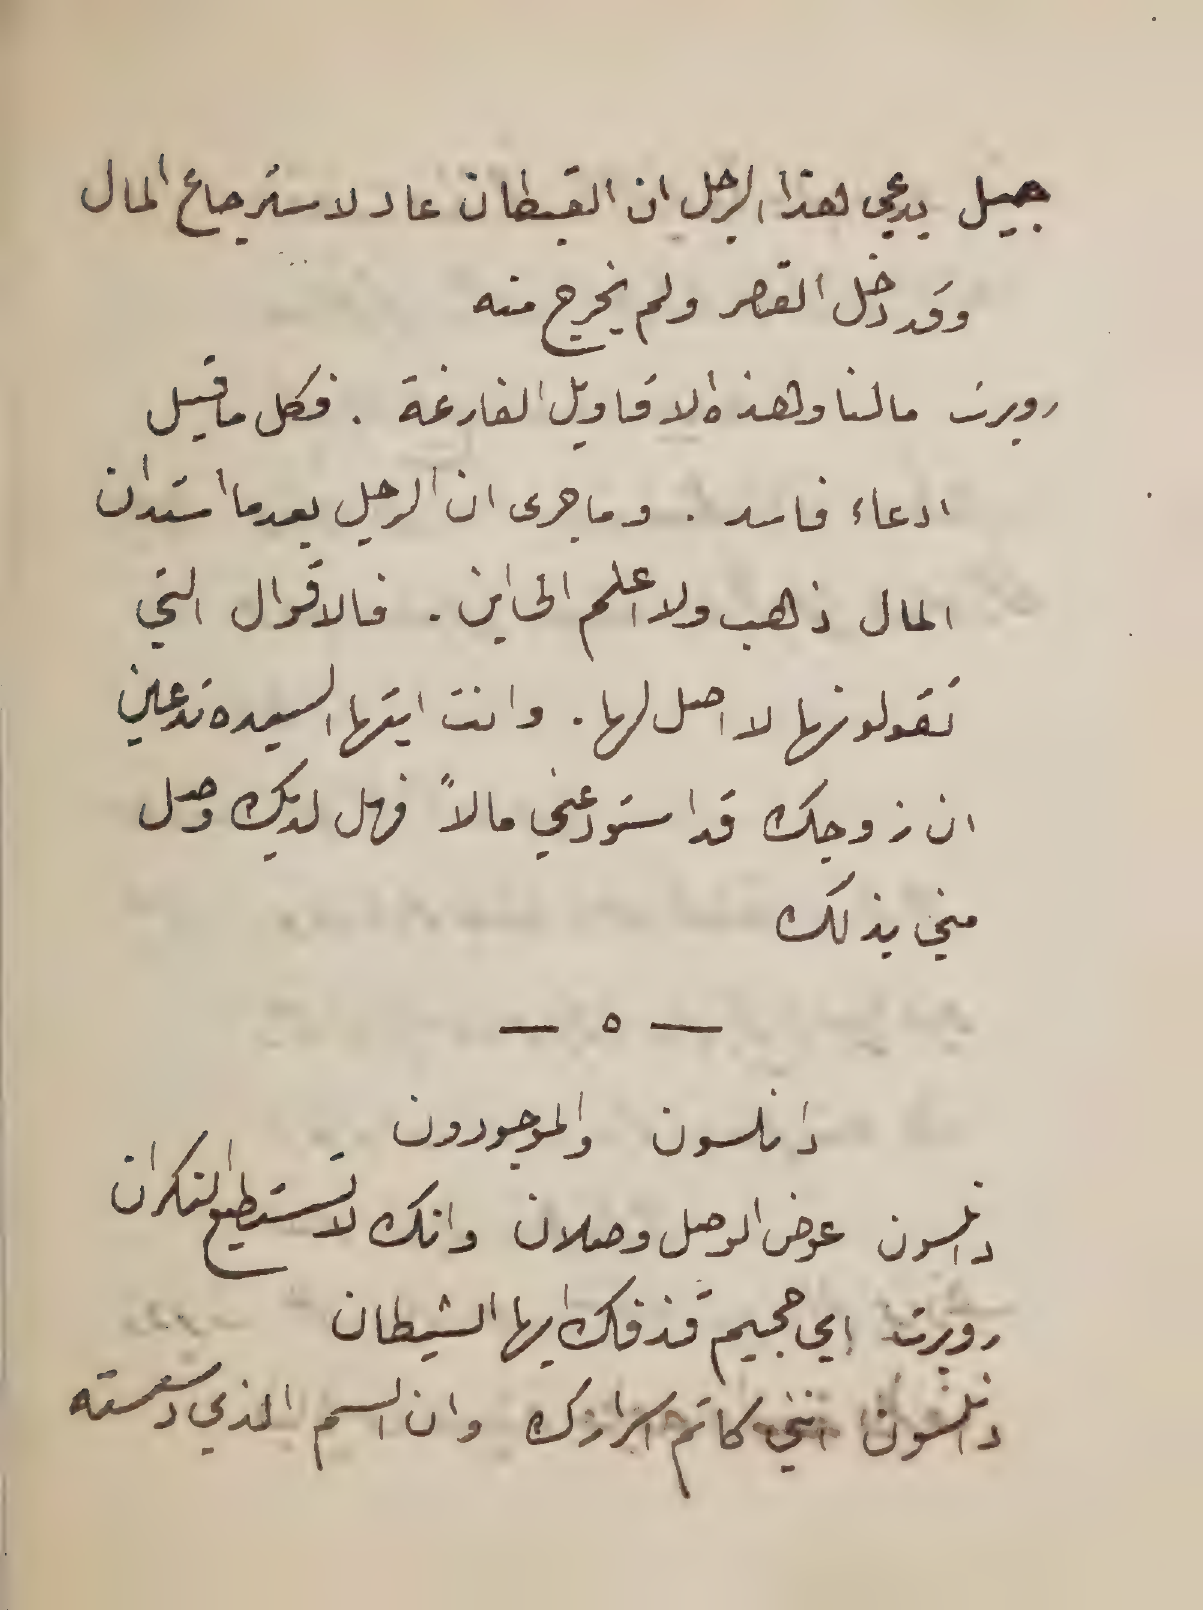 جميل يدعي لهذا الرجل ان القبطان عاد لاسترجاع المال
وقد دخل القصر ولم يخرج منه
روبرت مالنا ولهذه الاقاويل الفارغة . فكل ما قيل
ادعاء فاسد . وما جرى ان الرجل بعدما استدان
المال ذهب ولا اعلم الى اين . فالاقوال التي
تقولونها لا اصل لها . وانت ايتها السيده تدعين
ان زوجك قد استودعني مالاً فهل لديك وصل
مني بذلك
— ٥ —
دانلسون والموجودون
دانلسون عوض الوصل وصلان وانك لا تستطيع النكران
روبرت اي جحيم قذفك ايها الشيطان
دانلسون انني كاتم اسرارك وان السم الذي دسسته